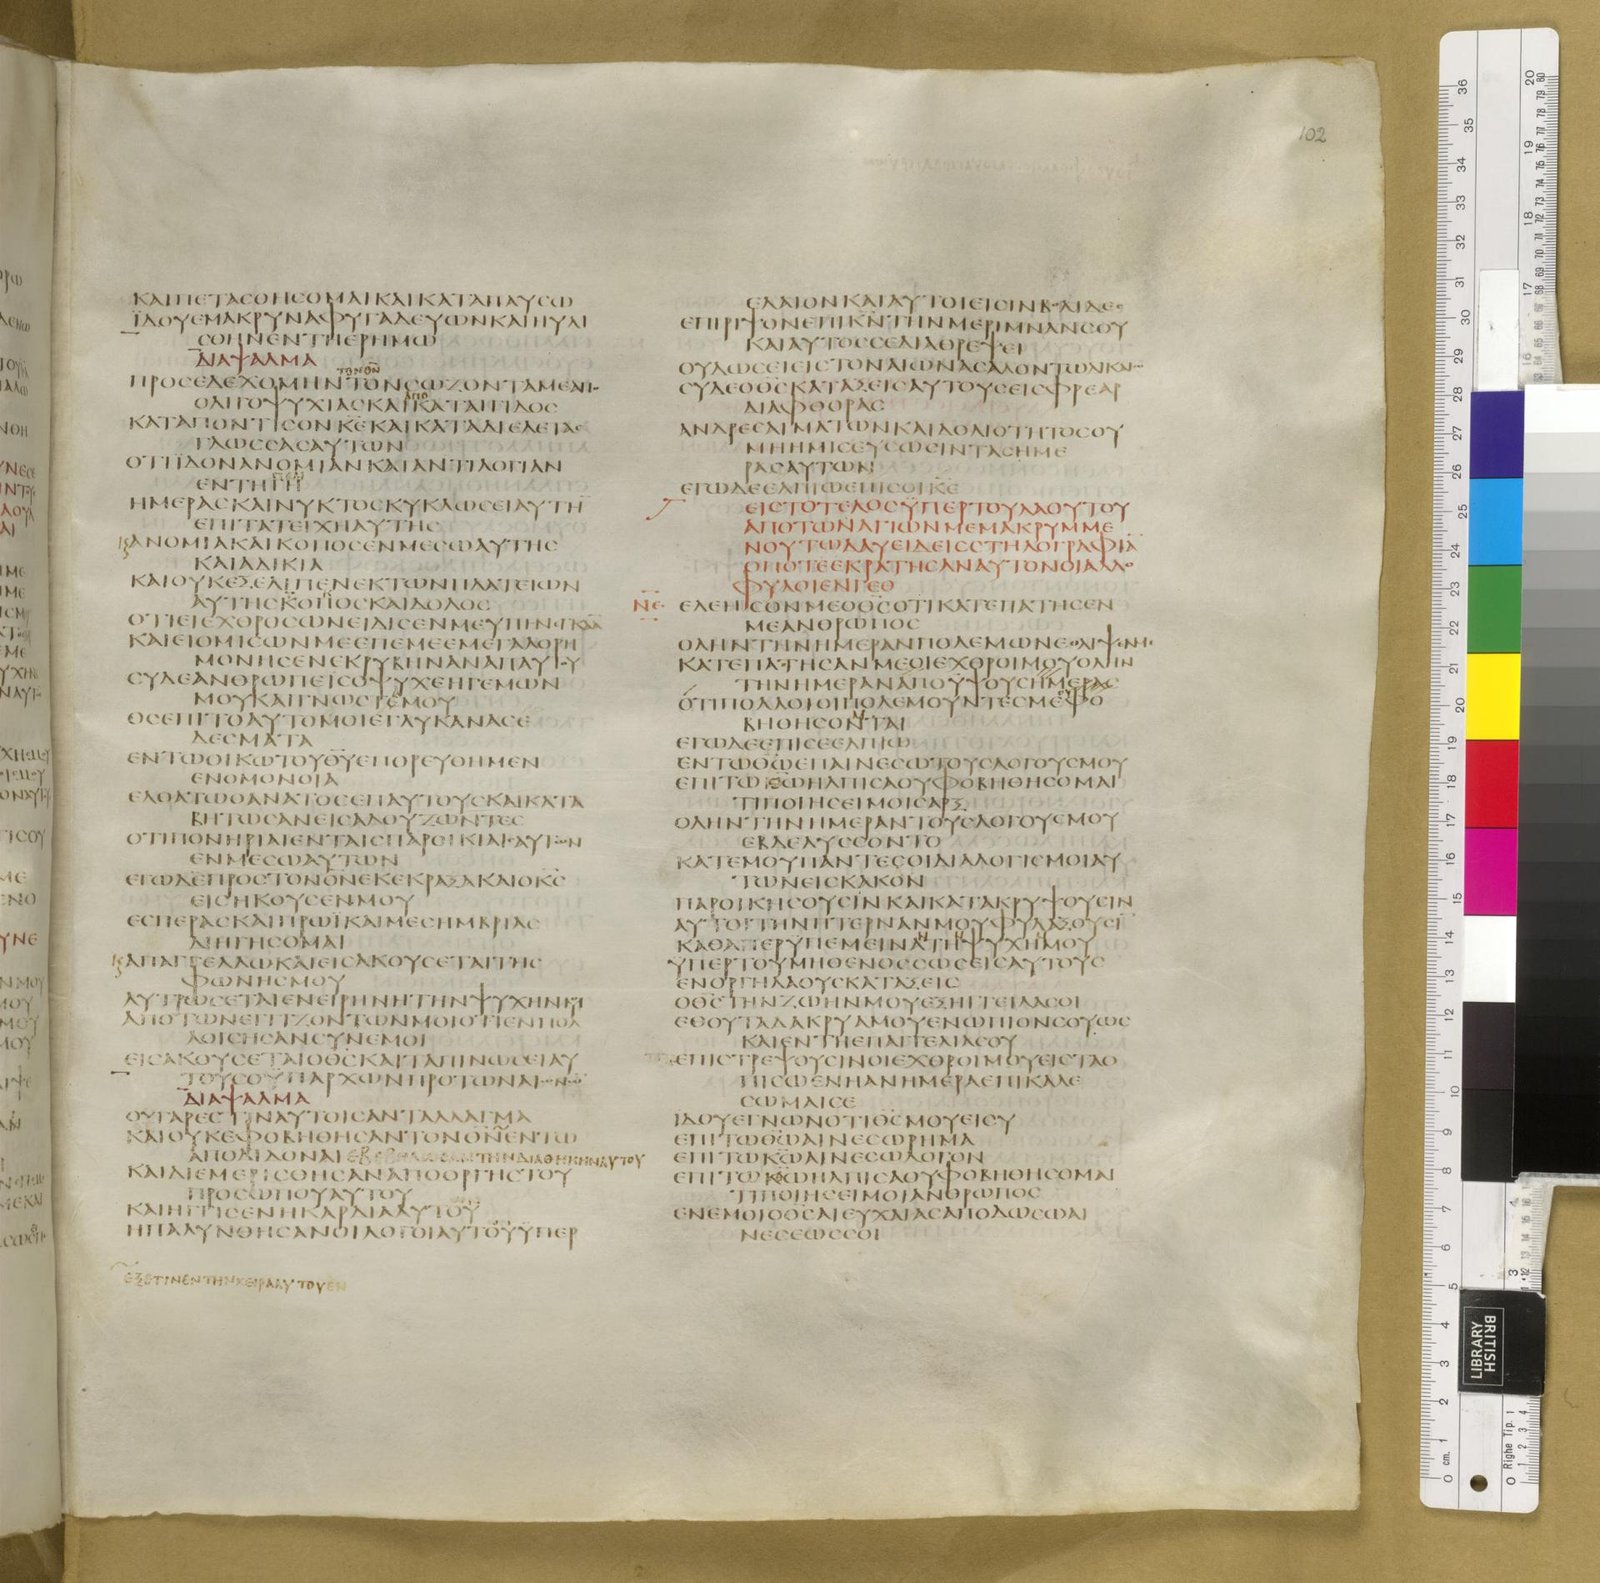 102
ΚΑΙΠΕΤΑΣΘΗΣΟΜΑΙΚΑΙΚΑΤΑΠΑΥΣΩ
ΪΔΟΥΕΜΑΚΡΥΝΑΦΥΓΑΔΕΥΩΝΚΑΙΗΥΛΙ
ΣΘΗΝΕΝΤΗΕΡΗΜΩ
ΔΙΑΨΑΛΜΑ
ΤΟΝΘΝ
ΠΡΟΣΕΔΕΧΟΜΗΝΤΟΝΣΩΖΟΝΤΑΜΕΑΠ
ΑΠΟ
ΟΛΙΓΟΨΥΧΙΑΣΚΑΙΚΑΤΑΙΓΙΔΟΣ
ΚΑΤΑΠΟΝΤΙΣΟΝΚΕΚΑΙΚΑΤΑΔΙΕΛΕΤΑΣ
ΓΛΩΣΣΑΣΑΥΤΩΝ
ΟΤΙΪΔΟΝΑΝΟΜΙΑΝΚΑΙΑΝΤΙΛΟΓΙΑΝ
ΕΝΤΗΓΗ
ΗΜΕΡΑΣΚΑΙΝΥΚΤΟΣΚΥΚΛΩΣΕΙΑΥΤΗ
ΕΠΙΤΑΤΕΙΧΗΑΥΤΗΣ
ΑΝΟΜΙΑΚΑΙΚΟΠΟΣΕΝΜΕΣΩΑΥΤΗΣ
ΚΑΙΑΔΙΚΙΑ
ΚΑΙΟΥΚΕΞΕΛΙΠΕΝΕΚΤΩΝΠΛΑΤΕΙΩΝ
ΑΥΤΗΣΚΟΠΟΣΚΑΙΔΟΛΟΣ
ΟΤΙΕΙΕΧΘΡΟΣΩΝΕΙΔΙΣΕΝΜΕΥΠΗΝΕΓΚΑ
ΚΑΙΕΙΟΜΙΣΩΝΜΕΕΠΕΜΕΕΜΕΓΑΛΟΡΗ
ΜΟΝΗΣΕΝΕΚΡΥΒΗΝΑΝΑΠΑΥΤΟΥ
ΣΥΔΕΑΝΘΡΩΠΕΙΣΟΨΥΧΕΗΓΕΜΩΝ
ΜΟΥΚΑΙΓΝΩΣΤΕΜΟΥ
ΟΣΕΠΙΤΟΑΥΤΟΜΟΙΕΓΛΥΚΑΝΑΣΕ
ΔΕΣΜΑΤΑ
ΕΝΤΩΟΙΚΩΤΟΥΘΥΕΠΟΡΕΥΘΗΜΕΝ
ΕΝΟΜΟΝΟΙΑ
ΕΛΘΑΤΩΘΑΝΑΤΟΣΕΠΑΥΤΟΥΣΚΑΙΚΑΤΑ
ΒΗΤΩΣΑΝΕΙΣΑΔΟΥΖΩΝΤΕΣ
ΟΤΙΠΟΝΗΡΙΑΙΕΝΤΑΙΣΠΑΡΟΙΚΙΑΙΣΑΥΤΩΝ
ΕΝΜΕΣΩΑΥΤΩΝ
ΕΓΩΔΕΠΡΟΣΤΟΝΘΝΕΚΕΚΡΑΞΑΚΑΙΟΚΣ
ΕΙΣΗΚΟΥΣΕΝΜΟΥ
ΕΣΠΕΡΑΣΚΑΙΠΡΩΪΚΑΙΜΕΣΗΜΒΡΙΑΣ
ΔΙΗΓΗΣΟΜΑΙ
ΑΠΑΓΓΕΛΛΩΚΑΙΕΙΣΑΚΟΥΣΕΤΑΙΤΗΣ
ΦΩΝΗΣΜΟΥ
ΛΥΤΡΩΣΕΤΑΙΕΝΕΙΡΗΝΗΤΗΝΨΥΧΗΝΜΟΥ
ΑΠΟΤΩΝΕΓΓΙΖΟΝΤΩΝΜΟΙΟΤΙΕΝΠΟΛ
ΛΟΙΣΗΣΑΝΣΥΝΕΜΟΙ
ΕΙΣΑΚΟΥΣΕΤΑΙΟΘΣΚΑΙΤΑΠΙΝΩΣΕΙΑΥ
ΤΟΥΣΟΫΠΑΡΧΩΝΠΡΟΤΩΝΑΙΩΝΩΝ
ΔΙΑΨΑΛΜΑ
ΟΥΓΑΡΕΣΤΙΝΑΥΤΟΙΣΑΝΤΑΛΛΑΓΜΑ
ΚΑΙΟΥΚΕΦΟΒΗΘΗΣΑΝΤΟΝΘΝΕΝΤΩ
ΑΠΟΔΙΔΟΝΑΙΕΒΕΒΗΛΩΣΑΝΤΗΝΔΙΑΘΗΚΗΝΑΥΤΟΥ
ΚΑΙΔΙΕΜΕΡΙΣΘΗΣΑΝΑΠΟΟΡΓΗΣΤΟΥ
ΠΡΟΣΩΠΟΥΑΥΤΟΥ
ΚΑΙΗΓΓΙΣΕΝΗΚΑΡΔΙΑΑΥΤΟΥ
ΗΠΑΛΥΝΘΗΣΑΝΟΙΛΟΓΟΙΑΥΤΟΥΥΠΕΡ
ΕΞΕΤΙΝΕΝΤΗΝΧΕΙΡΑΑΥΤΟΥΕΝ
ΕΛΑΙΟΝΚΑΙΑΥΤΟΙΕΙΣΙΝΒΟΛΙΔΕΣ
ΕΠΙΡΙΨΟΝΕΠΙΚΝΤΗΝΜΕΡΙΜΝΑΝΣΟΥ
ΚΑΙΑΥΤΟΣΣΕΔΙΑΘΡΕΨΕΙ
ΟΥΔΩΣΕΙΕΙΣΤΟΝΑΙΩΝΑΣΑΛΟΝΤΩΔΙΚΑΙΩ
ΣΥΔΕΟΘΣΚΑΤΑΞΕΙΣΑΥΤΟΥΣΕΙΣΦΡΕΑΡ
ΔΙΑΦΘΟΡΑΣ
ΑΝΔΡΕΣΑΙΜΑΤΩΝΚΑΙΔΟΛΙΟΤΗΤΟΣΟΥ
ΜΗΗΜΙΣΕΥΣΩΣΙΝΤΑΣΗΜΕ
ΡΑΣΑΥΤΩΝ
ΕΓΩΔΕΕΛΠΙΩΕΠΙΣΟΙΚΕ
ΕΙΣΤΟΤΕΛΟΣΫΠΕΡΤΟΥΛΑΟΥΤΟΥ
ΑΠΟΤΩΝΑΓΙΩΝΜΕΜΑΚΡΥΜΜΕ
ΝΟΥΤΩΔΑΥΕΙΔΕΙΣΣΤΗΛΟΓΡΑΦΙΑ
ΟΠΟΤΕΕΚΡΑΤΗΣΑΝΑΥΤΟΝΟΙΑΛΛΟ
ΦΥΛΟΙΕΝΓΕΘ
ΝΕ ΕΛΕΗΣΟΝΜΕΟΘΣΟΤΙΚΑΤΕΠΑΤΗΣΕΝ
ΜΕΑΝΘΡΩΠΟΣ
ΟΛΗΝΤΗΝΗΜΕΡΑΝΠΟΛΕΜΩΝΕΘΛΙΨΕΝΜΕ
ΚΑΤΕΠΑΤΗΣΑΝΜΕΟΙΕΧΘΡΟΙΜΟΥΟΛΗΝ
ΤΗΝΗΜΕΡΑΝΑΠΟΫΨΟΥΣΗΜΕΡΑΣ
ΟΤΙΠΟΛΛΟΙΟΙΠΟΛΕΜΟΥΝΤΕΣΜΕΦΟ
ΒΗΘΗΣΟΝΤΑΙ
ΕΓΩΔΕΕΠΙΣΕΕΛΠΙΩ
ΕΝΤΩΘΩΕΠΑΙΝΕΣΩΤΟΥΣΛΟΓΟΥΣΜΟΥ
ΕΠΙΤΩΘΩΗΛΠΙΣΑΟΥΦΟΒΗΘΗΣΟΜΑΙ
ΤΙΠΟΙΗΣΕΙΜΟΙΣΑΡΞ
ΟΛΗΝΤΗΝΗΜΕΡΑΝΤΟΥΣΛΟΓΟΥΣΜΟΥ
ΕΒΔΕΛΥΣΣΟΝΤΟ
ΚΑΤΕΜΟΥΠΑΝΤΕΣΟΙΔΙΑΛΟΓΙΣΜΟΙΑΥ
ΤΩΝΕΙΣΚΑΚΟΝ
ΠΑΡΟΙΚΗΣΟΥΣΙΝΚΑΙΚΑΤΑΚΡΥΨΟΥΣΙΝ
ΑΥΤΟΙΤΗΝΠΤΕΡΝΑΝΜΟΥΦΥΛΑΞΟΥΣΙ
ΚΑΘΑΠΕΡΫΠΕΜΕΙΝΑΤΗΨΥΧΗΜΟΥ
ΥΠΕΡΤΟΥΜΗΘΕΝΟΣΣΩΣΕΙΣΑΥΤΟΥΣ
ΕΝΟΡΓΗΛΑΟΥΣΚΑΤΑΞΕΙΣ
ΟΘΣΤΗΝΖΩΗΝΜΟΥΕΞΗΓΓΕΙΛΑΣΟΙ
ΕΘΟΥΤΑΔΑΚΡΥΑΜΟΥΕΝΩΠΙΟΝΣΟΥΩΣ
ΚΑΙΕΝΤΗΕΠΑΓΓΕΛΙΑΣΟΥ
ΕΠΙΣΤΡΕΨΟΥΣΙΝΟΙΕΧΘΡΟΙΜΟΥΕΙΣΤΑΟ
ΠΙΣΩΕΝΗΑΝΗΜΕΡΑΕΠΙΚΑΛΕ
ΣΩΜΑΙΣΕ
ΪΔΟΥΕΓΝΩΝΟΤΙΘΣΜΟΥΕΙΣΥ
ΕΠΙΤΩΘΩΑΙΝΕΣΩΡΗΜΑ
ΕΠΙΤΩΚΩΑΙΝΕΣΩΛΟΓΟΝ
ΕΠΙΤΩΚΩΗΛΠΙΣΑΟΥΦΟΒΗΘΗΣΟΜΑΙ
ΤΙΠΟΙΗΣΕΙΜΟΙΑΝΘΡΩΠΟΣ
ΕΝΕΜΟΙΟΘΣΑΙΕΥΧΑΙΑΣΑΠΟΔΩΣΩΑΙ
ΝΕΣΕΩΣΣΟΙ
BRITISH
LIBRARY
Righe Tip. 1
cm.